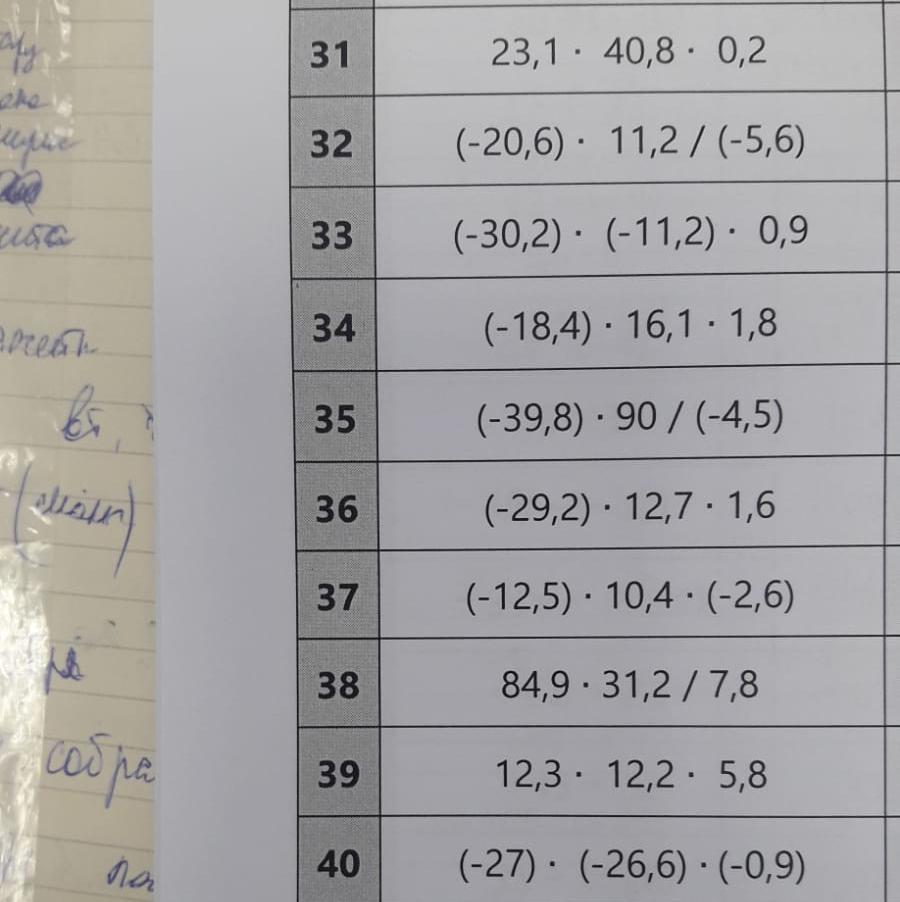 31 23,1 · 40,8 · 0,2
32 (-20,6) · 11,2 / (-5,6)
33 (-30,2) · (-11,2) · 0,9
34 (-18,4) · 16,1 · 1,8
35 (-39,8) · 90 / (-4,5)
36 (-29,2) · 12,7 · 1,6
37 (-12,5) · 10,4 · (-2,6)
38 84,9 · 31,2 / 7,8
39 12,3 · 12,2 · 5,8
40 (-27) · (-26,6) · (-0,9)
собра